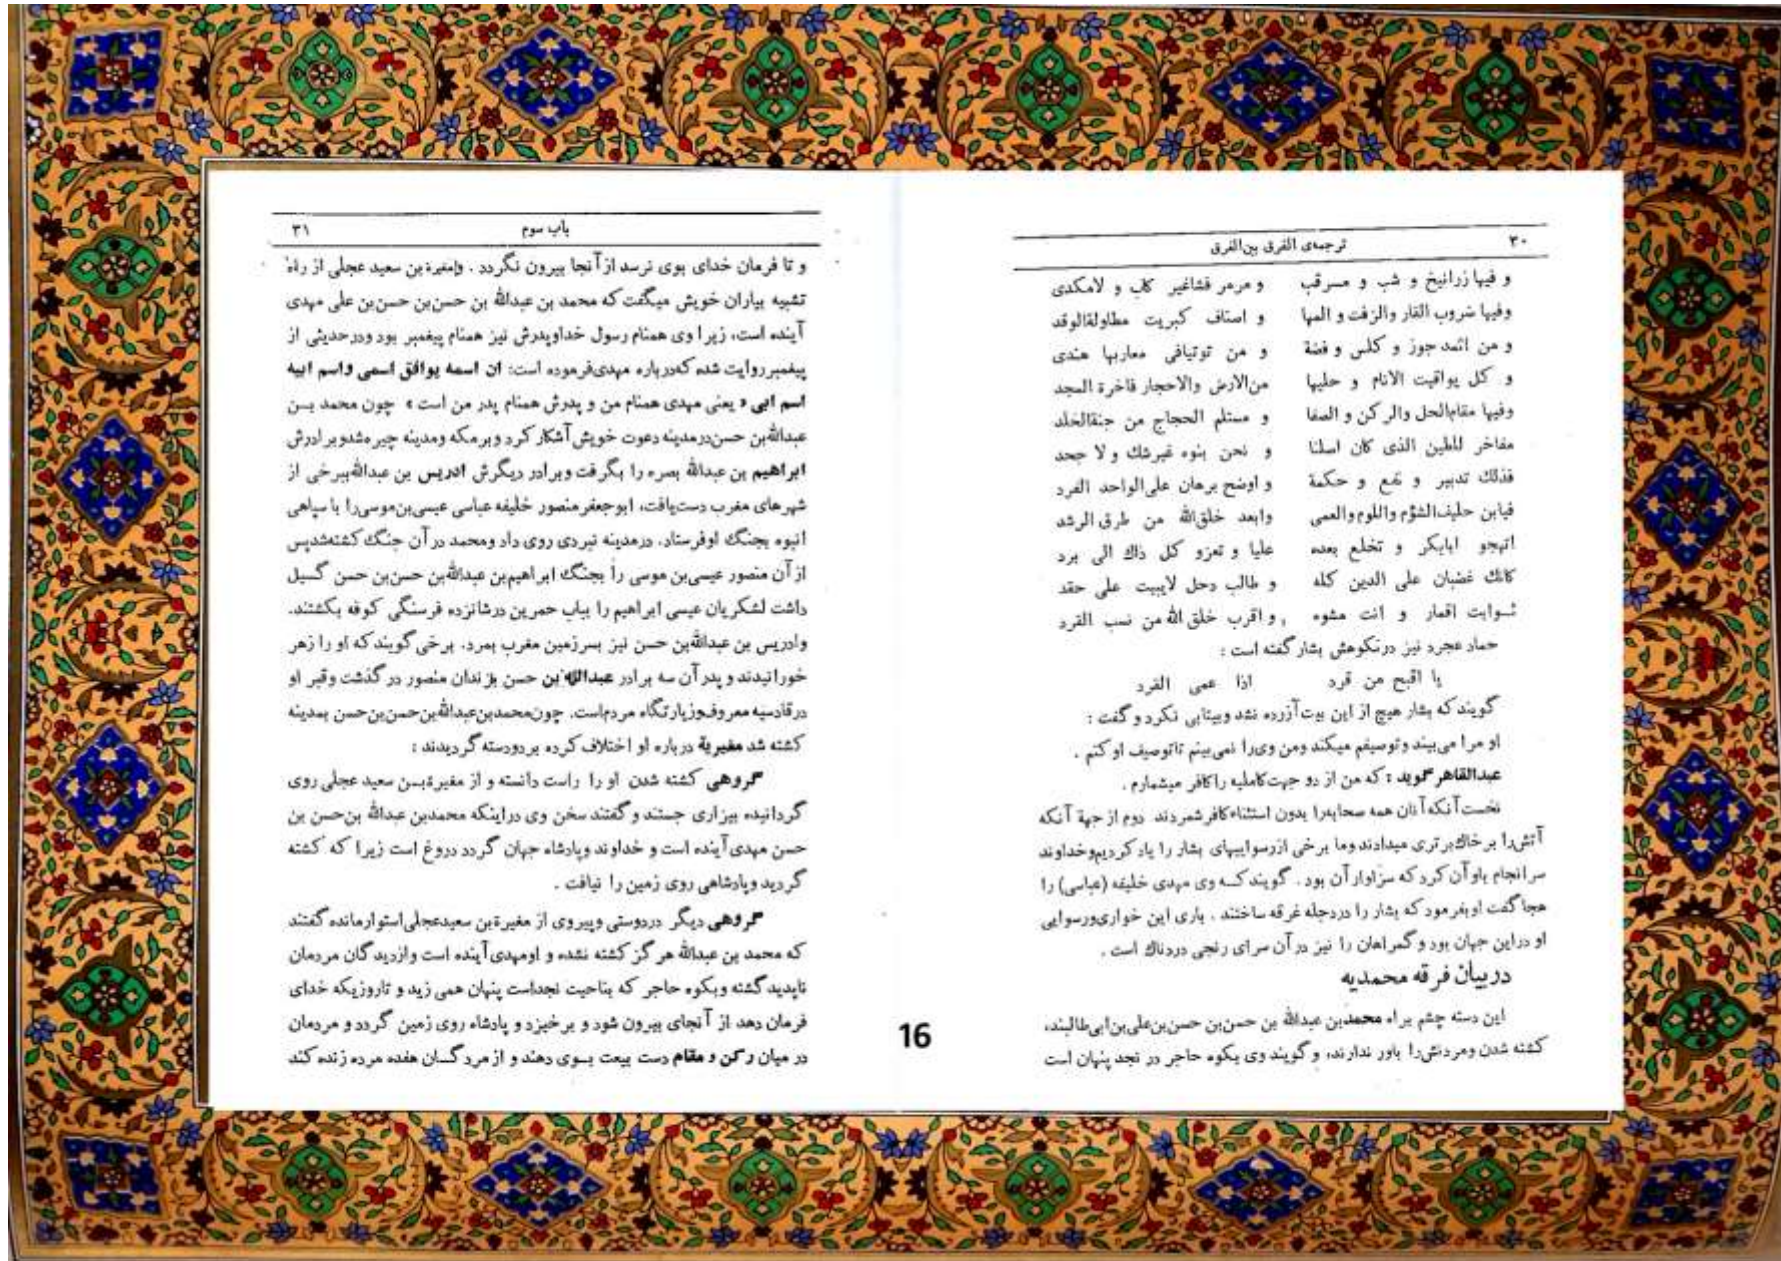 ۳۰
ترجمه‌ی الفرق بین‌الفرق
و فیها زرانیخ و شب و مسرقب و مرمر فشاغیر کاب و لامکدی
وفیها ضروب القار والزفت و المها و اصناف کبریت مطاولةالوقد
و من اثمد جوز و کلس و فضة و من توتیافی معاربها هندی
و کل یواقیت الانام و حلیها من‌الارض والاحجار فاخرة المجد
وفیها مقام‌الحل والرکن و الصفا و مستلم الحجاج من جنةالخلد
مفاخر للطین الذی کان اصلنا و نحن بنوه غیرشك ولا جحد
فذلك تدبیر و نفع و حکمة و اوضح برهان علی‌الواحد الفرد
فیابن حلیف‌الشؤم واللوم والعمی وابعد خلق‌الله من طرق‌الرشد
اتهجو ابابکر و تخلع بعده علیا و تعزو کل ذاك الی برد
کانك غضبان علی الدین کله و طالب دحل لایبیت علی حقد
ثـوابت اقمار و انت مشوه و اقرب خلق الله من نسب القرد
حماد عجرد نیز درنکوهش بشار گفته است :
یا اقبح من قرد اذا عمی القرد
گویند که بشار هیچ از این بیت آزرده نشد وبیتابی نکرد و گفت :
او مرا می‌بیند وتوصیفم میکند ومن وی‌را نمی‌بینم تاتوصیف او کنم .
عبدالقاهر گوید : که من از دو جهت کاملیه را کافر میشمارم .
نخست آنکه آنان همه صحابه‌را بدون استثناء کافر شمردند دوم از جهة آنکه
آتش‌را برخاك برتری میدادند وما برخی ازرسواییهای بشار را یاد کردیم وخداوند
سرانجام باو آن کرد که سزاوار آن بود . گویند کــه وی مهدی خلیفه (عباسی) را
هجا گفت او بفرمود که بشار را دردجله غرقه ساختند . باری این خواری‌ورسوایی
او دراین جهان بود و گمراهان را نیز در آن سرای رنجی دردناك است .
در بیان فرقه محمدیه
این دسته چشم براه محمدبن عبدالله بن حسن‌بن حسن‌بن‌علی‌بن‌ابی‌طالبند،
کشته شدن ومردنش‌را باور ندارند، و گویند وی بکوه حاجر در نجد پنهان است
باب سوم
۳۱
و تا فرمان خدای بوی نرسد از آنجا بیرون نگردد . ومغیرة بن سعید عجلی از راه
تشبیه بیاران خویش میگفت که محمد بن عبدالله بن حسن‌بن حسن‌بن علی مهدی
آینده است، زیرا وی همنام رسول خداوپدرش نیز همنام پیغمبر بود ودرحدیثی از
پیغمبر روایت شده که درباره مهدی فرموده است: ان اسمه یوافق اسمی واسم ابیه
اسم ابی « یعنی مهدی همنام من و پدرش همنام پدر من است » چون محمد بــن
عبدالله‌بن حسن‌درمدینه دعوت خویش آشکار کرد وبر مکه ومدینه چیره شدوبرادرش
ابراهیم بن عبدالله بصره را بگرفت وبرادر دیگرش ادریس بن عبدالله‌ببرخی از
شهرهای مغرب دست‌یافت، ابوجعفر منصور خلیفه عباسی عیسی‌بن‌موسی‌را با سپاهی
انبوه بجنگ اوفرستاد، درمدینه نبردی روی داد ومحمد در آن جنگ کشته‌شدپس
از آن منصور عیسی‌بن موسی را بجنگ ابراهیم‌بن عبدالله‌بن حسن‌بن حسن گسیل
داشت لشکریان عیسی ابراهیم را بباب حمرین درشانزده فرسنگی کوفه بکشتند.
وادریس بن عبدالله‌بن حسن نیز بسرزمین مغرب بمرد. برخی گویند که او را زهر
خورانیدند و پدر آن سه برادر عبدالله بن حسن بزندان منصور در گذشت وقبر او
درقادسیه معروف‌وزیارتگاه مردم‌است. چون‌محمدبن‌عبدالله‌بن‌حسن‌بن‌حسن بمدینه
کشته شد مغیریة درباره او اختلاف کرده بردودسته گردیدند :
گروهی کشته شدن او را راست دانسته و از مغیرة‌بــن سعید عجلی روی
گردانیده بیزاری جستند و گفتند سخن وی دراینکه محمدبن عبدالله بن‌حسن بن
حسن مهدی آینده است و خداوند وپادشاه جهان گردد دروغ است زیرا که کشته
گردید وپادشاهی روی زمین را نیافت .
گروهی دیگر دردوستی وپیروی از مغیرة‌بن سعیدعجلی‌استوار مانده گفتند
که محمد بن عبدالله هر گز کشته نشده و اومهدی آینده است وازدیدگان مردمان
ناپدید گشته وبکوه حاجر که بناحیت نجداست پنهان همی زید و تاروزیکه خدای
فرمان دهد از آنجای بیرون شود و برخیزد و پادشاه روی زمین گردد و مردمان
در میان رکن و مقام دست بیعت بــوی دهند و از مردگــان هفده مرده زنده کند
16